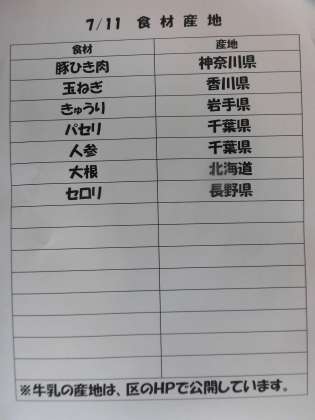 7/11 食材産地
食材 産地
豚ひき肉 神奈川県
玉ねぎ 香川県
きゅうり 岩手県
パセリ 千葉県
人参 千葉県
大根 北海道
セロリ 長野県
※牛乳の産地は、区のHPで公開しています。